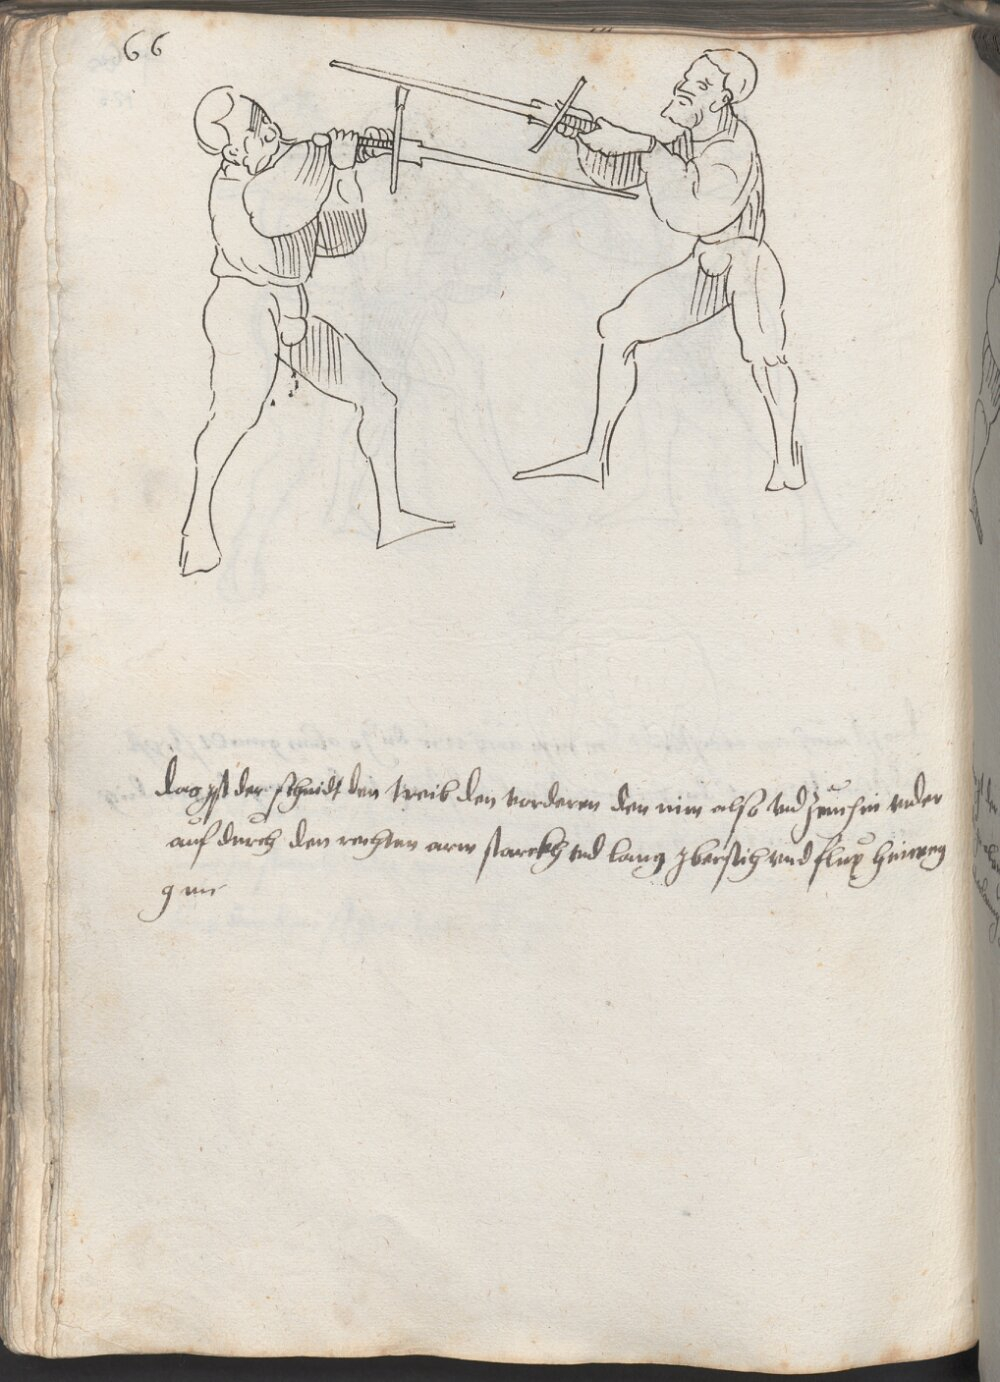 66
das yst der schnidt den treib den vorderen den nim also vnd zeuch in vnder
auf durch den rechten arm starckh vnd lang yberstich vnd flux hinweg